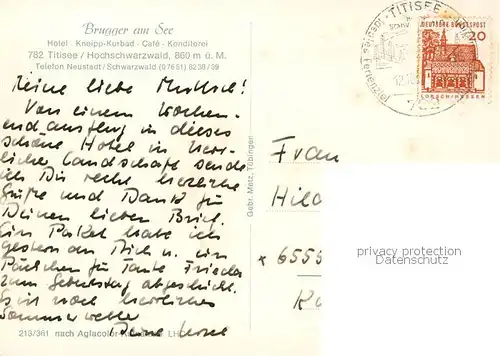 Brugger am See
Hotel · Kneipp-Kurbad · Café · Konditorei
782 Titisee / Hochschwarzwald, 860 m ü. M.
Telefon Neustadt / Schwarzwald (0 76 51) 8238/39
TITISEE
DEUTSCHE BUNDESPOST
20
LORSCH/HESSEN
Meine liebe
Von einem Wochen-
endausflug in dieses
schöne Hotel in herr-
licher Landschaft sende
ich Dir recht herzliche
Grüße und Dank für
Deinen lieben Brief.
Ein Paket habe ich
gestern an Dich u. ein
Päckchen für Tante Frieda
zum Geburtstag abgeschickt.
Es ist noch herrliches
Sommerwetter
Deine
Gebr. Metz, Tübingen
Frau
6555
privacy protection
Datenschutz
213/361 nach Agfacolor